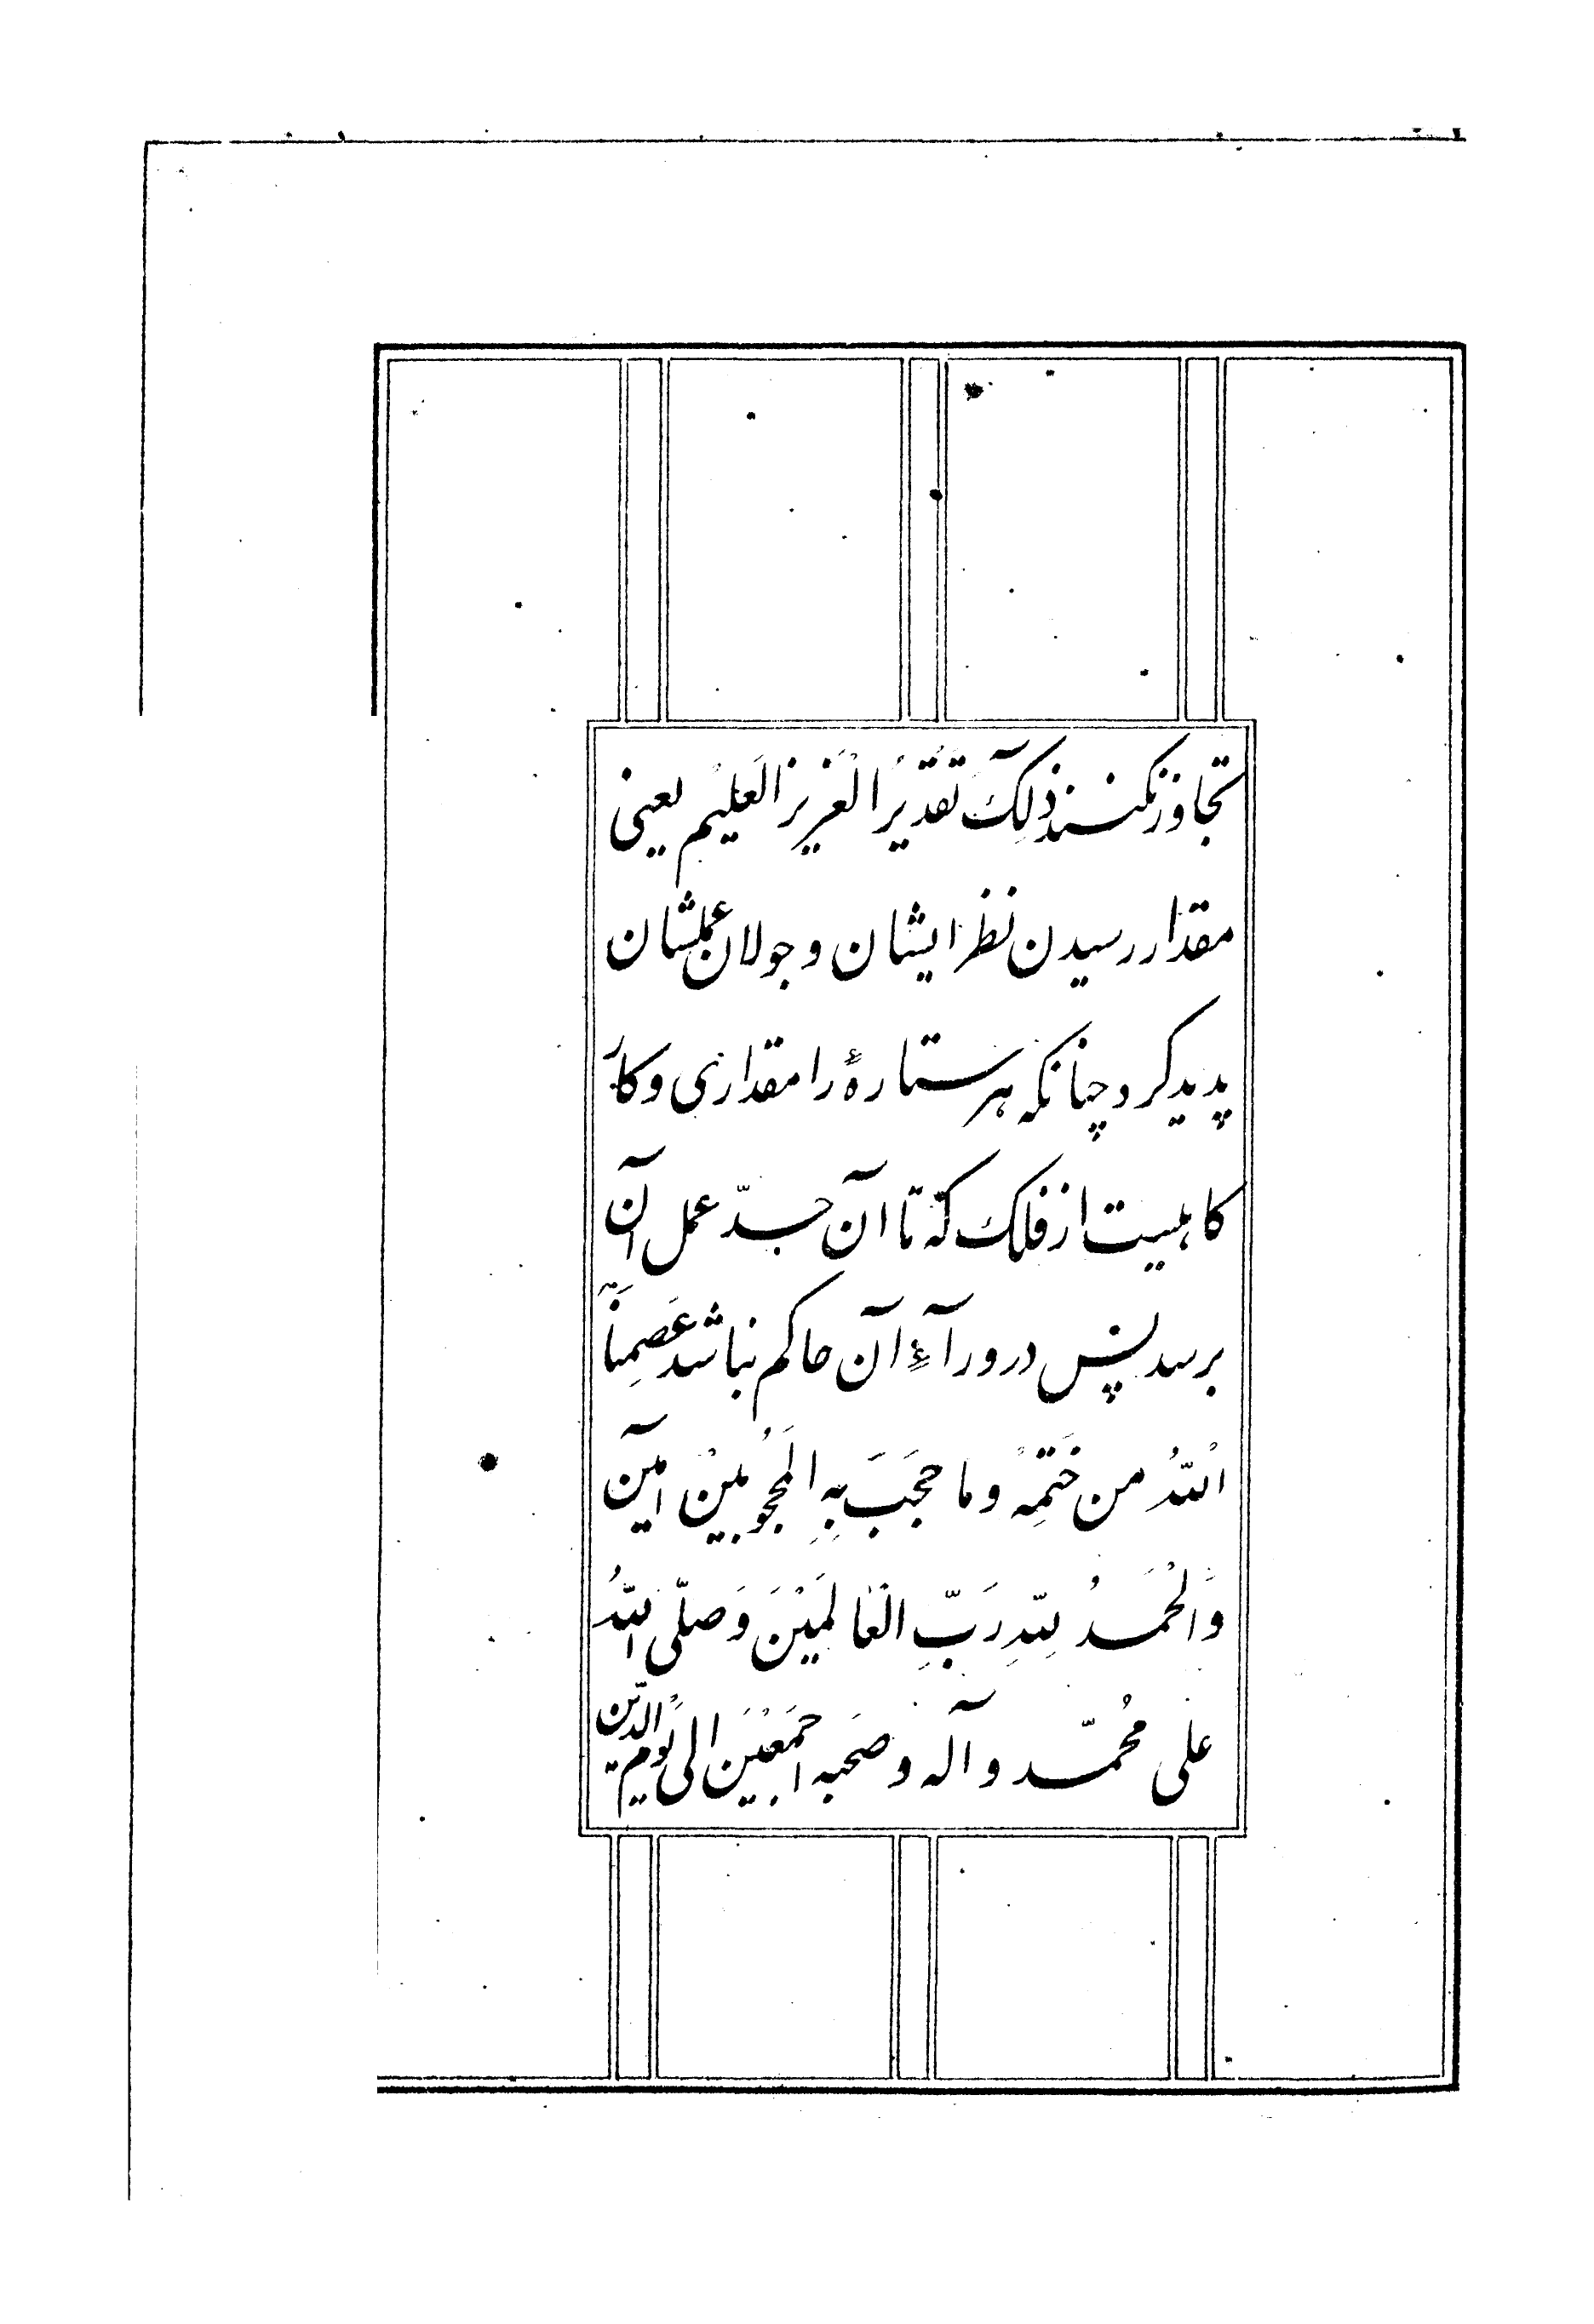 تجاوز نکنند ذٰلِکَ تَقْدِیْرُ الْعَزِیْزِ الْعَلِیْمِ یعنی
مقدار رسیدن نظر ایشان و جولان عملشان
پدید کرد چنانکه هر ستارهٔ را مقداری و کار
کاهیست از فلک که تا آن حدّ عمل آن
برسد پس در ورآءِ آن حاکم نباشد عَصِمَنَا
اللّٰهُ من خَتْمِهٖ و ما حَجَبَ بِهِ الْمَحْجُوْبِیْنَ آمین
وَالْحَمْدُ لِلّٰهِ رَبِّ الْعَالَمِیْنَ وَ صلّی اللّٰهُ
علی مُحمّد و آله و صَحبه اَجْمَعِیْنَ الی یَوْمِ الدّین